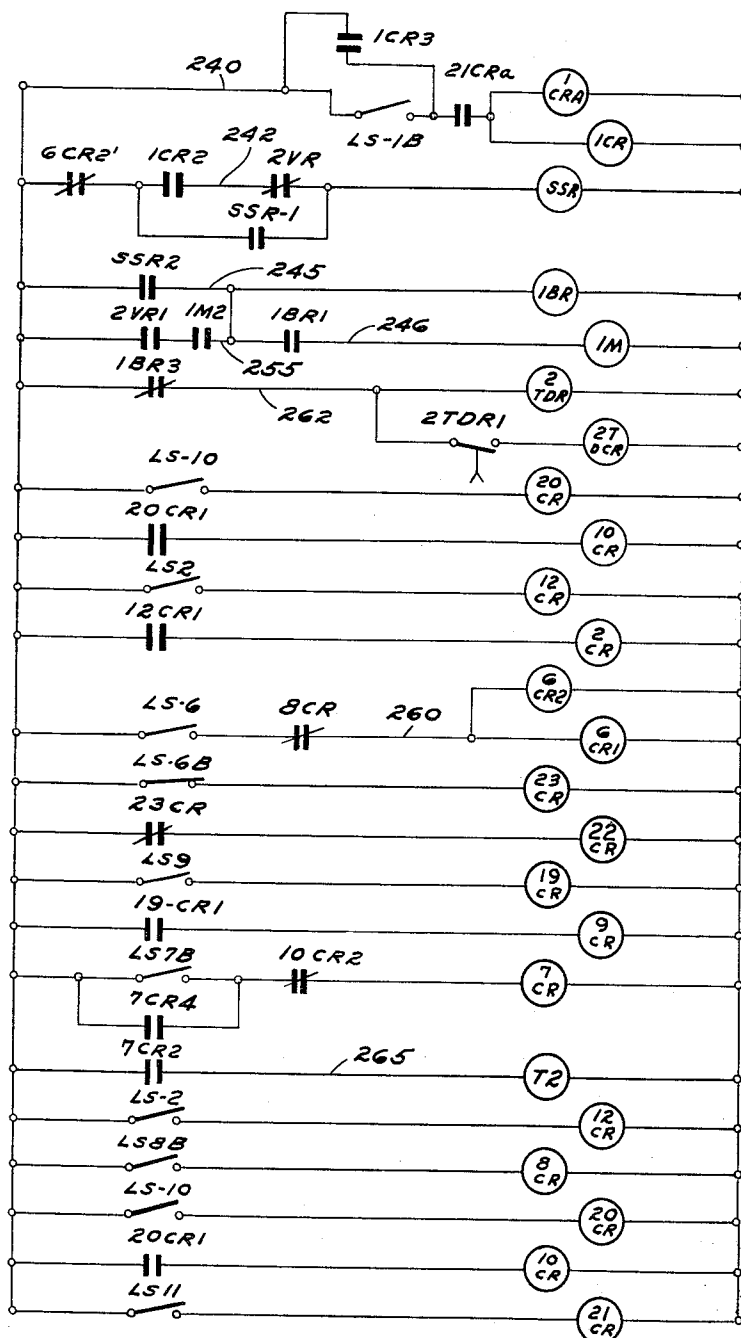 1CR3
240
21CRa
1
CRA
LS-1B
1CR
6CR2'
1CR2
242
2VR
SSR
SSR-1
SSR2
245
1BR
2VR1
1M2
1BR1
246
1M
255
1BR3
262
2
TDR
2TDR1
2T
DCR
LS-10
20
CR
20CR1
10
CR
LS2
12
CR
12CR1
2
CR
6
CR2
LS-6
8CR
260
6
CR1
LS-6B
23
CR
23CR
22
CR
LS9
19
CR
19-CR1
9
CR
LS7B
10CR2
7
CR
7CR4
7CR2
265
T2
LS-2
12
CR
LS8B
8
CR
LS-10
20
CR
20CR1
10
CR
LS11
21
CR